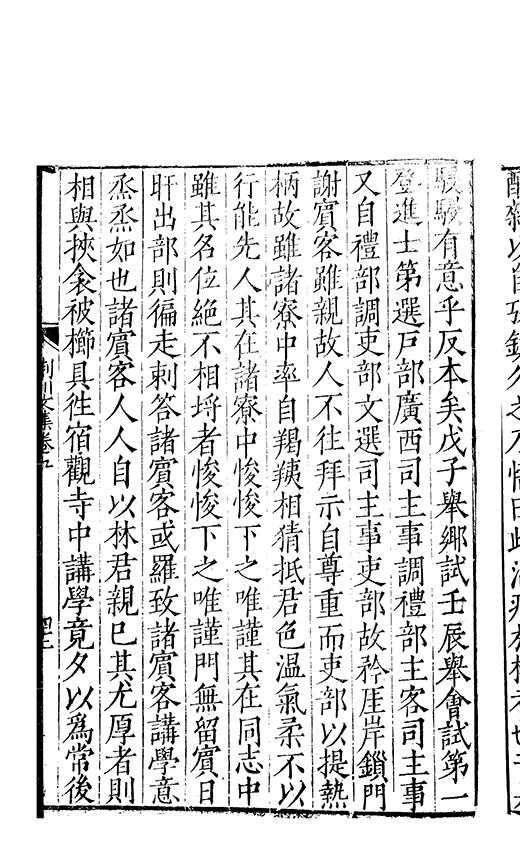 駸駸有意乎反本矣戊子舉鄉試壬辰舉會試第一
登進士第選戶部廣西司主事調禮部主客司主事
又自禮部調吏部文選司主事吏部故矜厓岸鎖門
謝賓客雖親故人不往拜示自尊重而吏部以提熱
柄故雖諸寮中率自羯羠相猜抵君色溫氣柔不以
行能先人其在諸寮中悛悛下之唯謹其在同志中
雖其名位絕不相埒者悛悛下之唯謹門無留賓日
旰出部則徧走剌答諸賓客或羅致諸賓客講學意
烝烝如也諸賓客人人自以林君親已其尤厚者則
相與挾衾被櫛具徃宿觀寺中講學竟夕以爲常後
荆川文集卷五